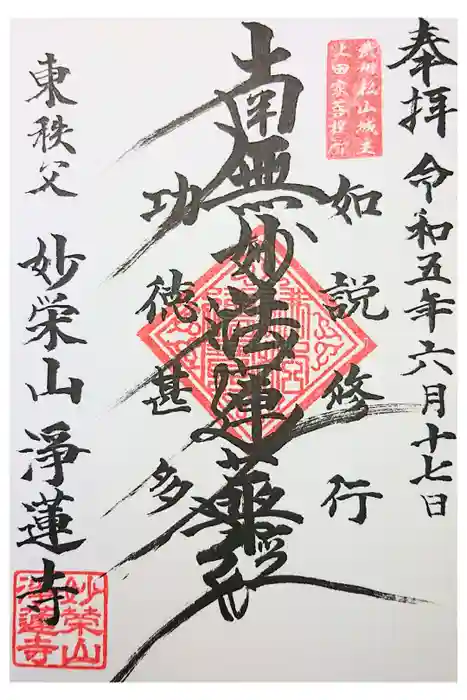 奉拝 令和五年六月十七日
武州松山城主
上田家菩提所
如説修行
南無妙法蓮華経
功徳甚多
東秩父 妙栄山 浄蓮寺
妙栄山
浄蓮寺